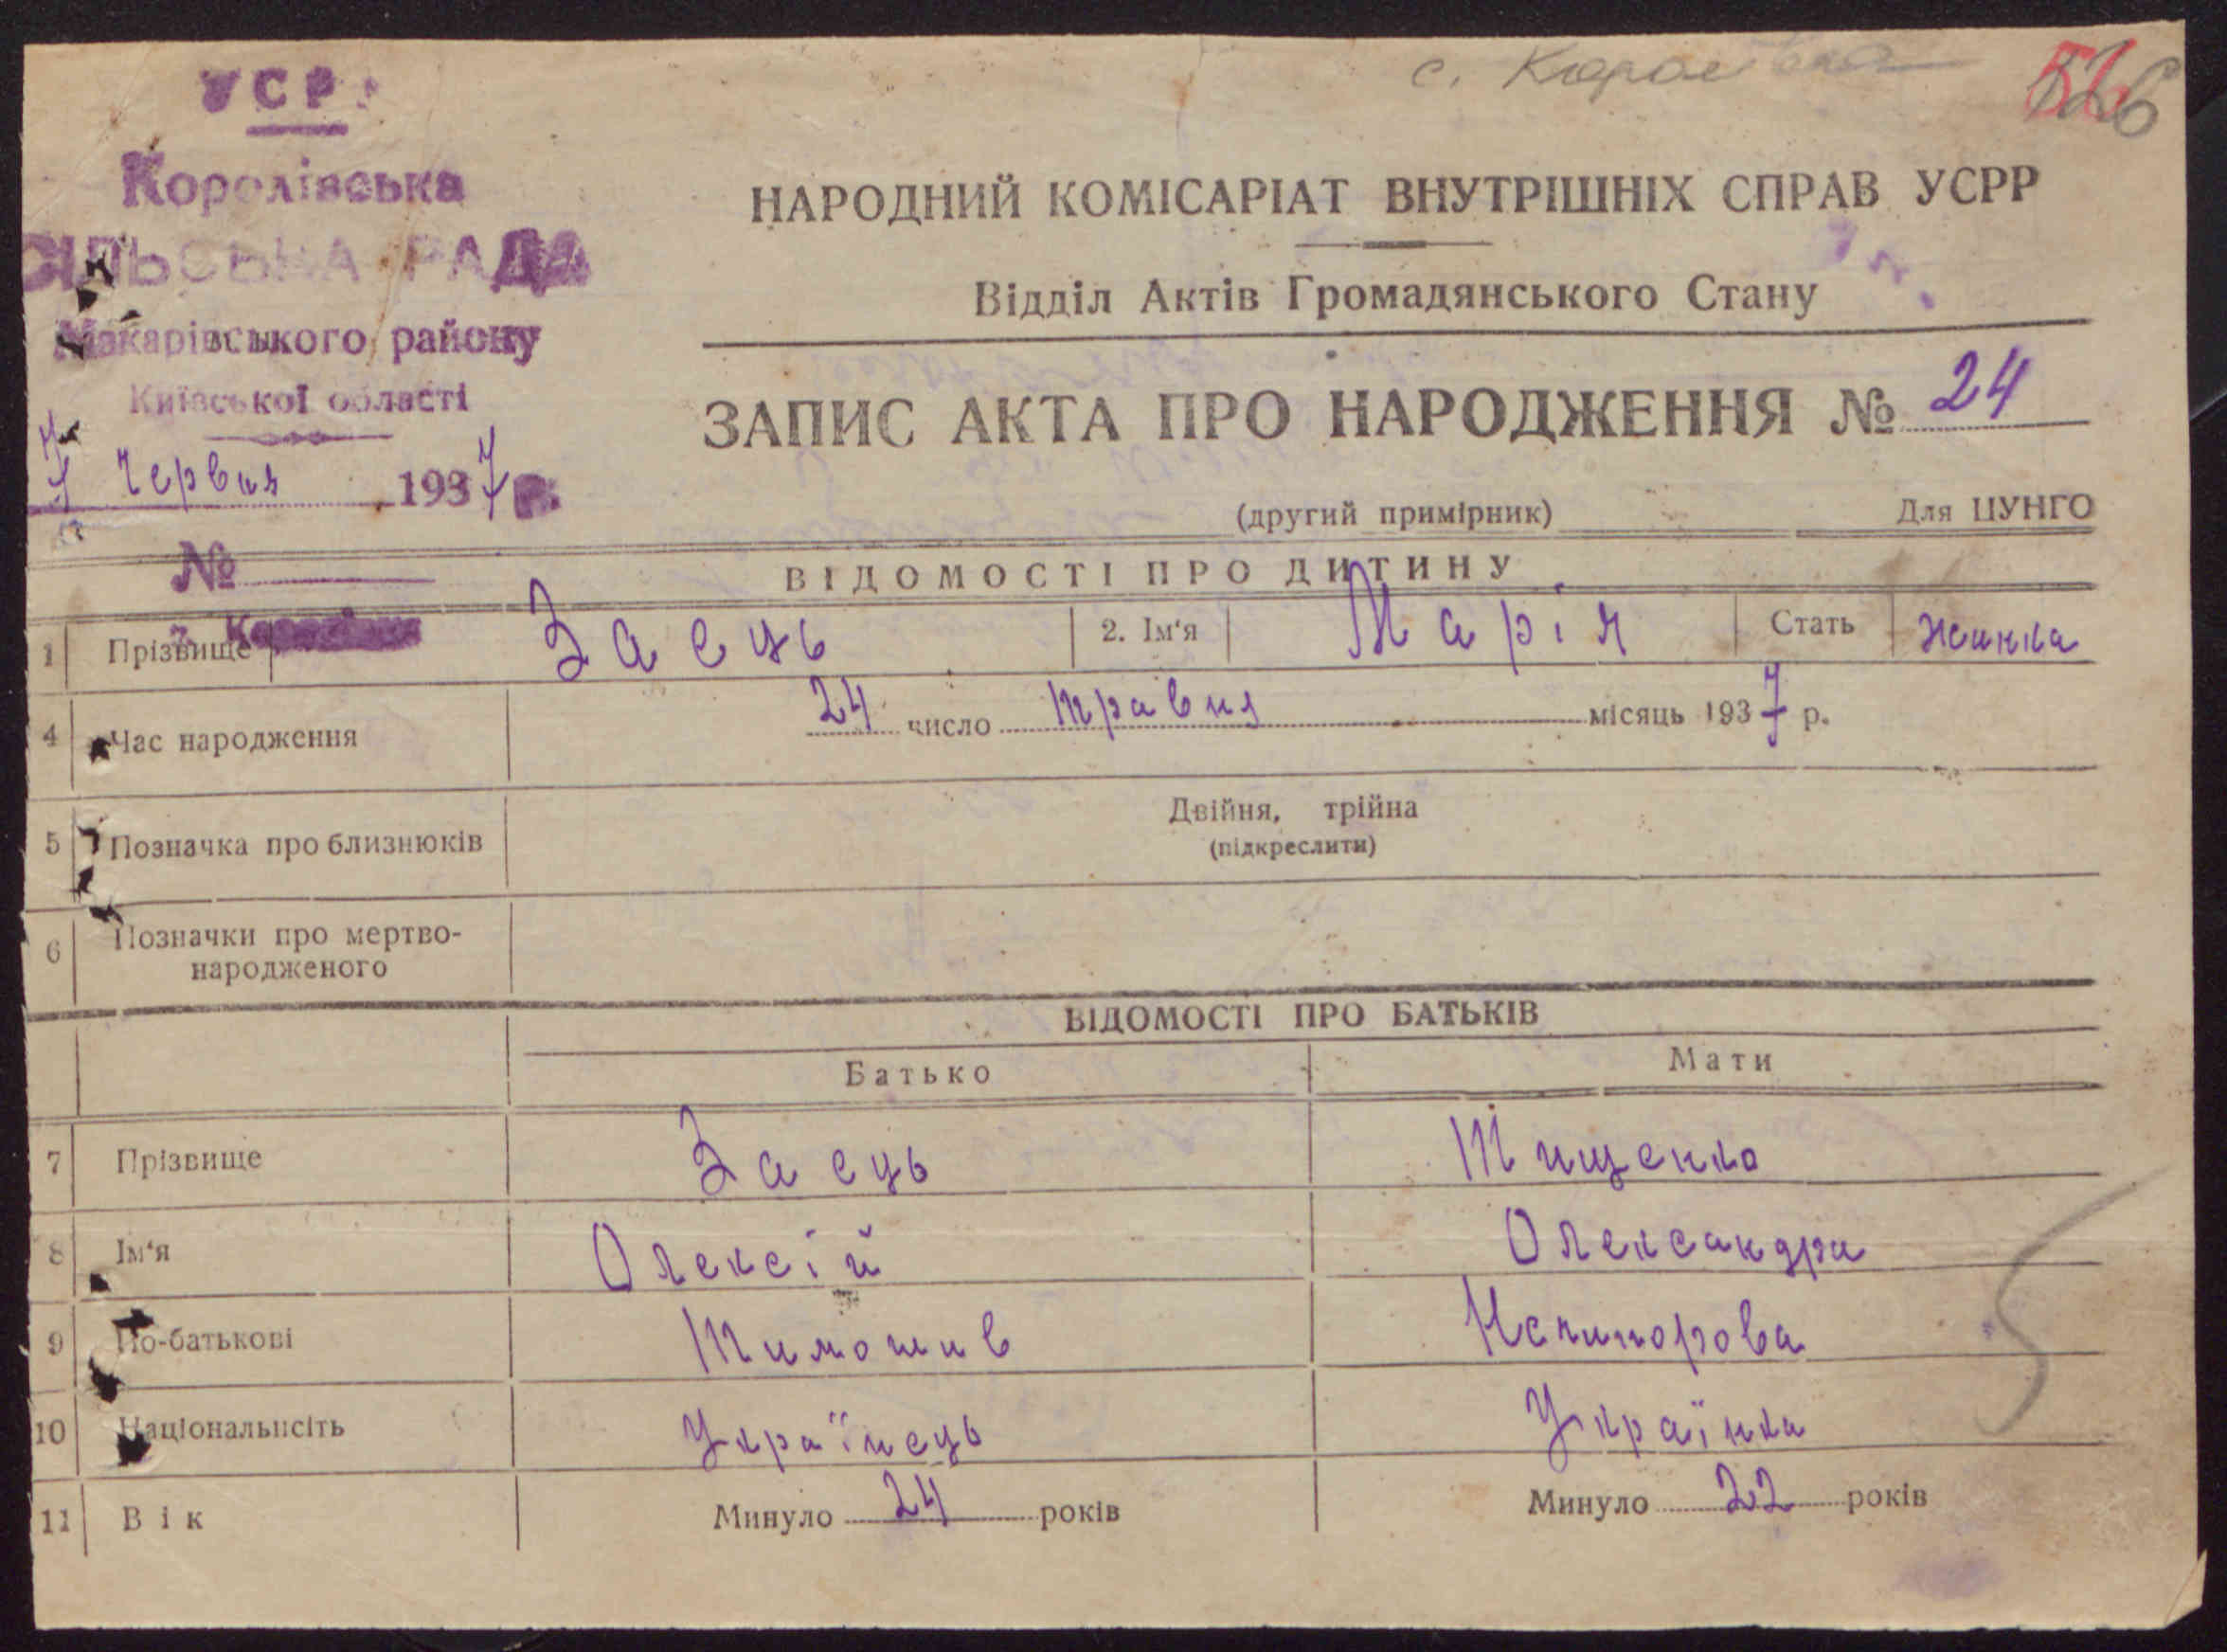 с. Королівка
УСРР
Королівська
СІЛЬСЬКА РАДА
Макарівського району
Київської області
7 червня 1937 р.
№
с. Королівка
НАРОДНИЙ КОМІСАРІАТ ВНУТРІШНІХ СПРАВ УСРР
Відділ Актів Громадянського Стану
ЗАПИС АКТА ПРО НАРОДЖЕННЯ № 24
(другий примірник) Для ЦУНГО
ВІДОМОСТІ ПРО ДИТИНУ
1 Прізвище Заєць 2. Ім'я Марія Стать жинка
4 Час народження 24 число травня місяць 1937 р.
5 Позначка про близнюків Двійня, трійна
(підкреслити)
6 Позначки про мертво-
народженого
ВІДОМОСТІ ПРО БАТЬКІВ
Батько Мати
7 Прізвище Заєць Тищенко
8 Ім'я Олексій Олександра
9 По-батькові Тимошив
10 Національнсіть Українець Українка
11 Вік Минуло 24 років Минуло 22 років